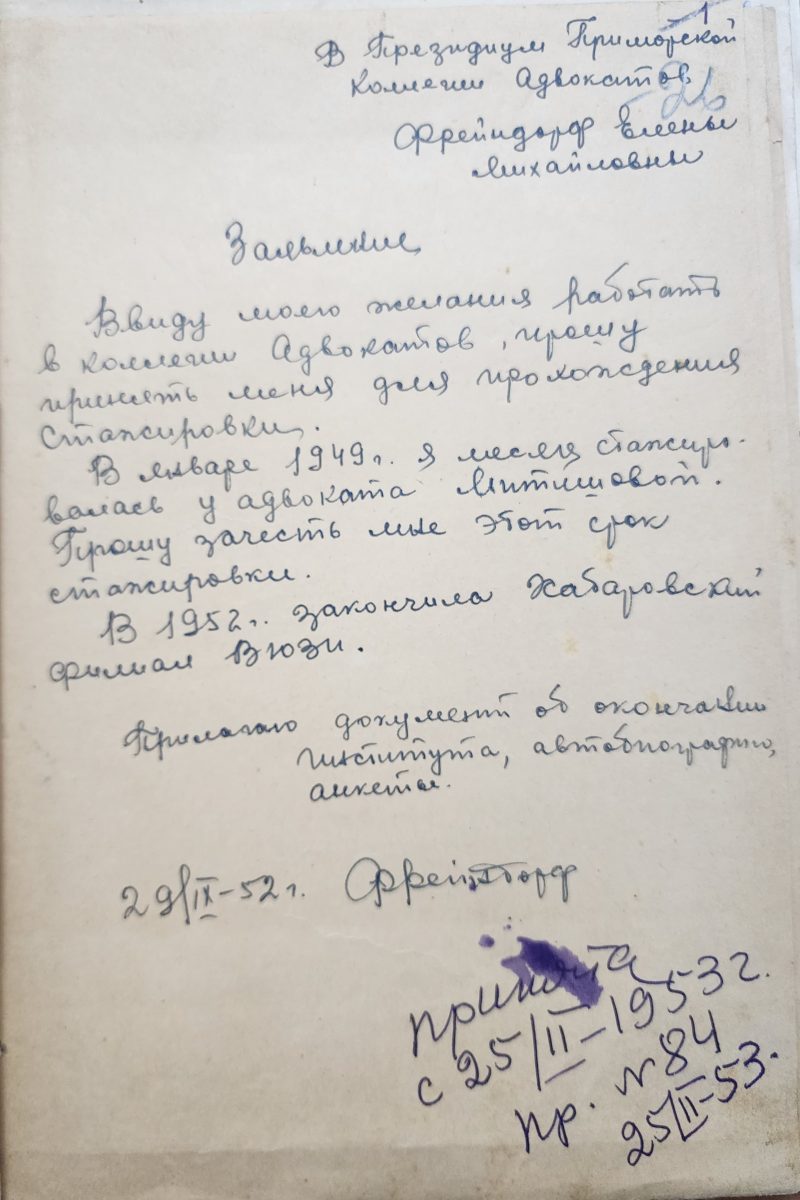 В Президиум Приморской
Коллегии Адвокатов
Фрейндорф Елены
Михайловны
Заявление
Ввиду моего желания работать
в коллегии Адвокатов, прошу
принять меня для прохождения
стажировки.
В январе 1949г. я месяц стажиро-
валась у адвоката Митишовой.
Прошу зачесть мне этот срок
стажировки.
В 1952г. закончила Хабаровский
филиал ВЮЗИ.
Прилагаю документ об окончании
института, автобиографию,
анкеты.
29/IX-52г. Фрейндорф
принята
с 25/II-1953г.
пр. N84
25/II-53.